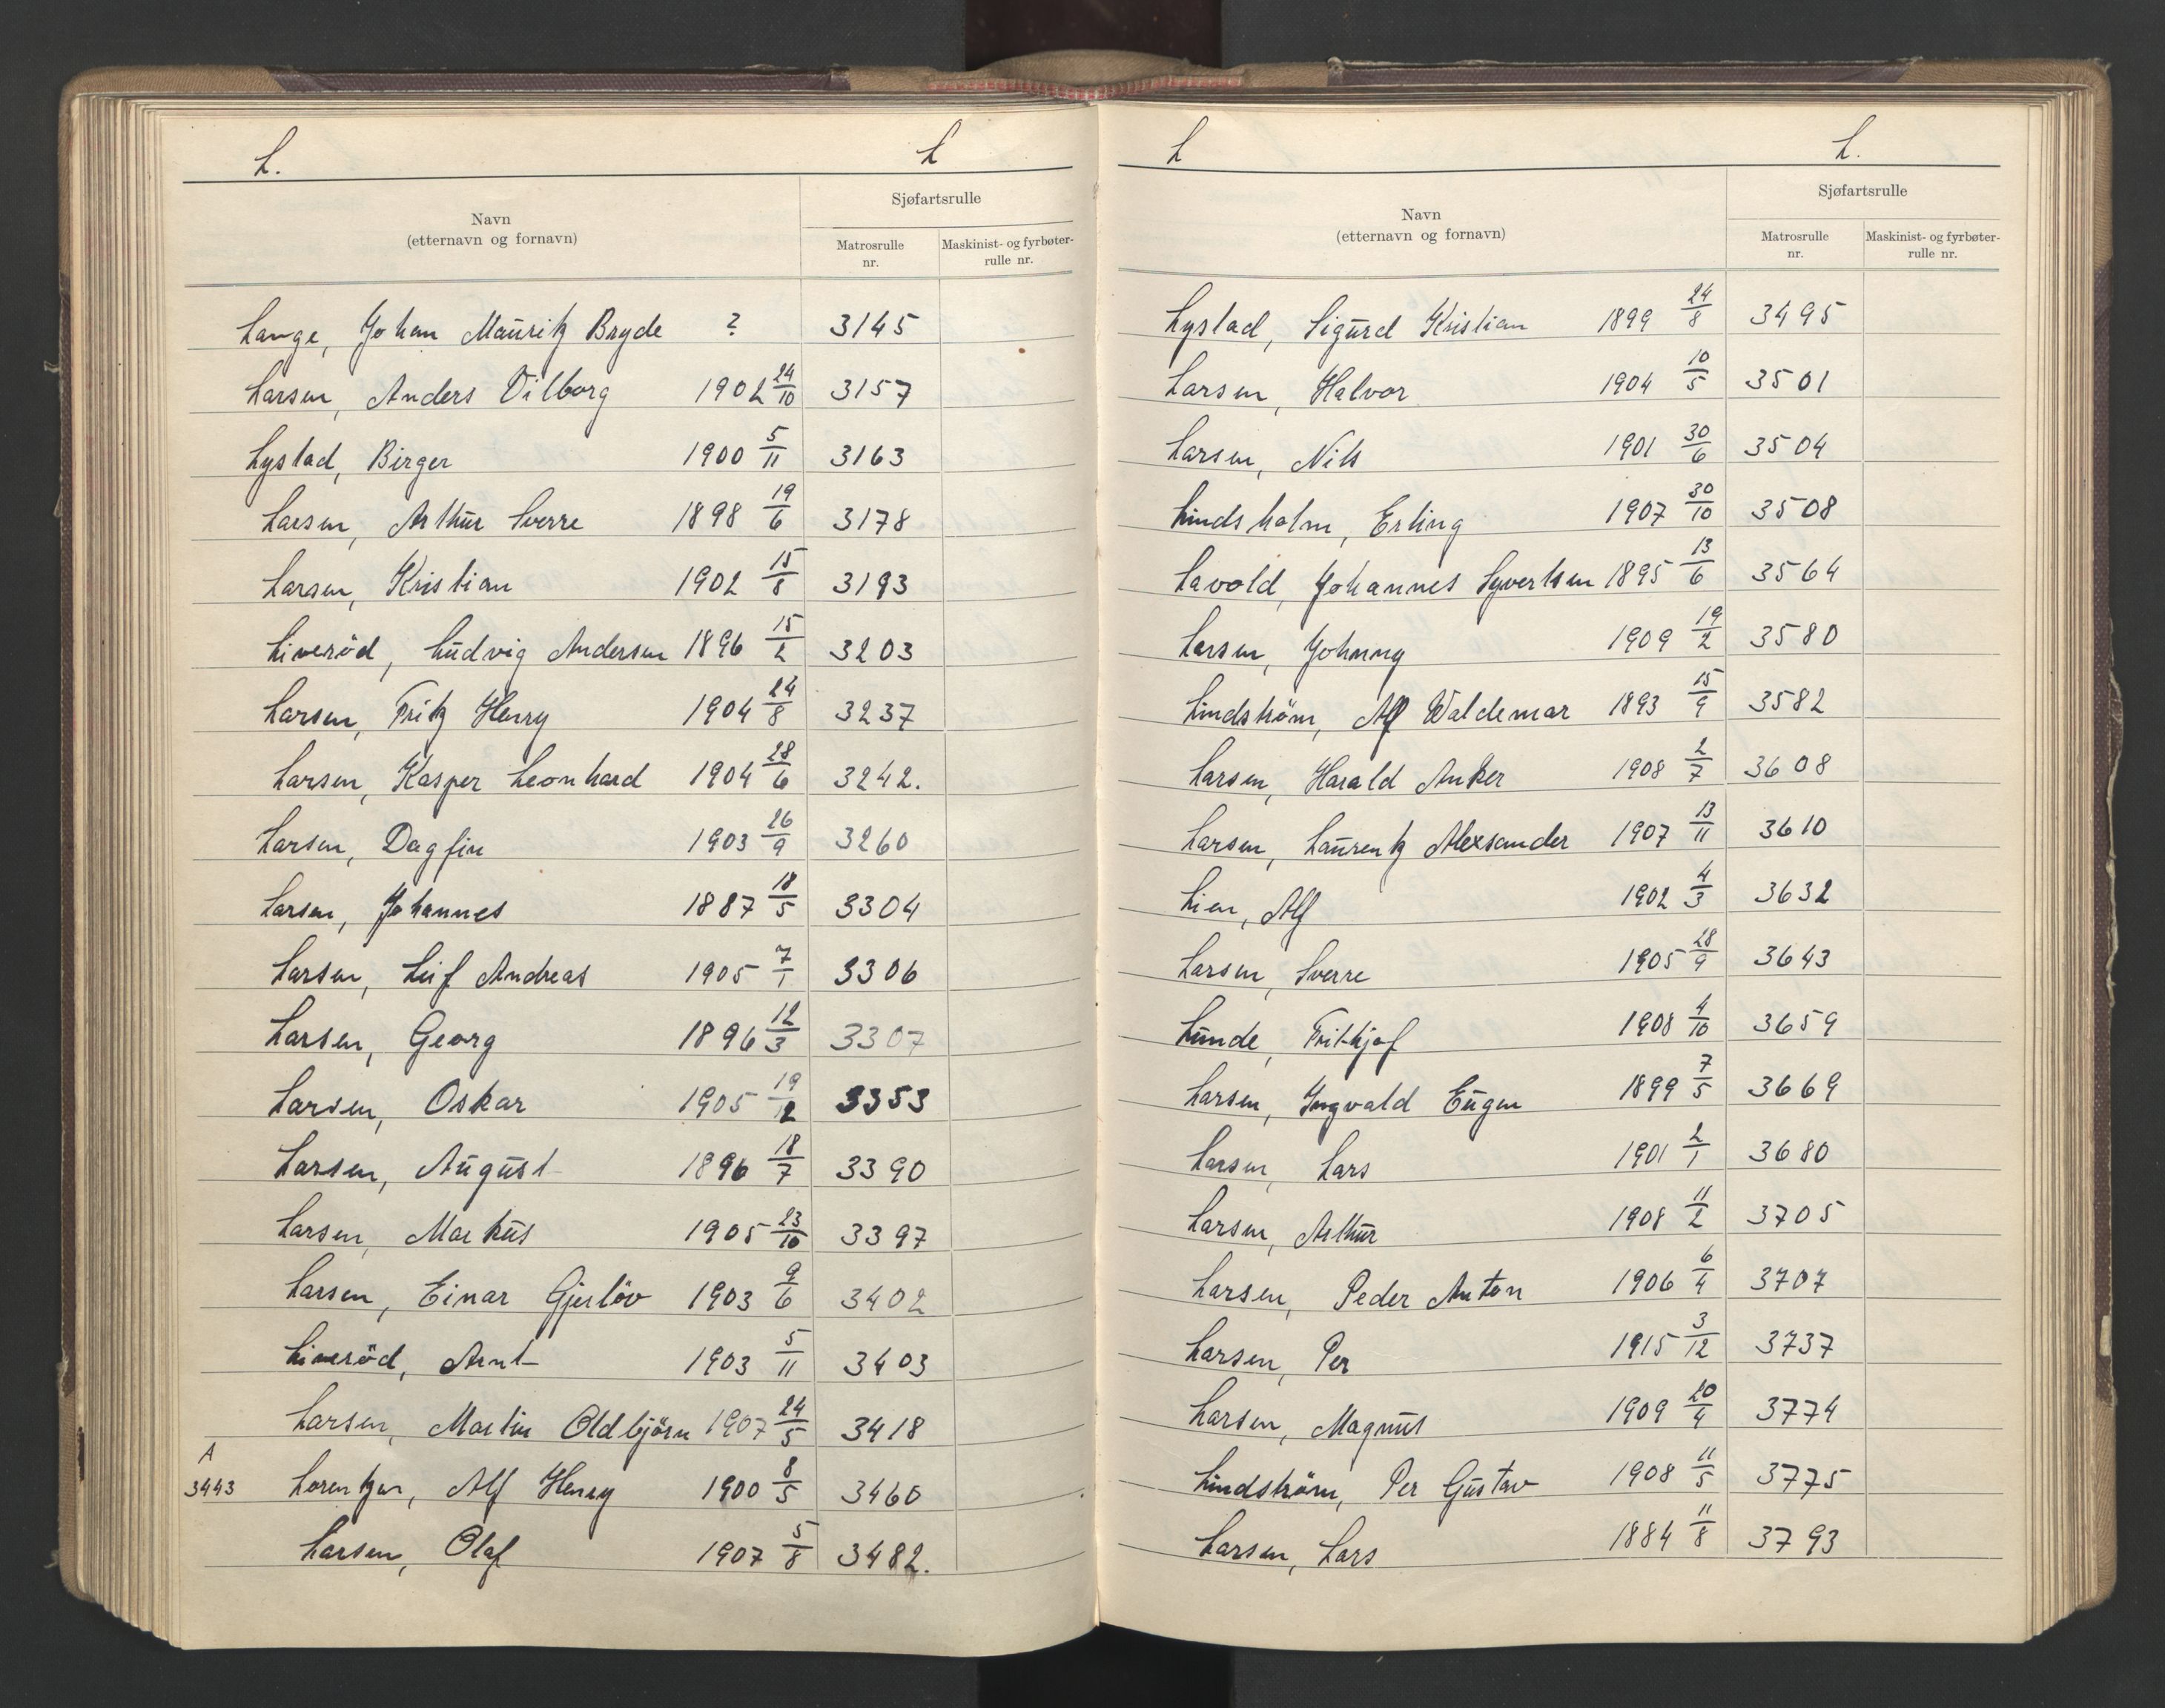 L.
L
Navn
(etternavn og fornavn)
Sjøfartsrulle
Matrosrulle
nr.
Maskinist- og fyrbøter-
rulle nr.
Lange, Johan Mauritz Bryde ? 3145
Larsen, Anders Vilborg 1902 24/10 3157
Lystad, Birger 1900 5/11 3163
Larsen, Arthur Sverre 1898 19/6 3178
Larsen, Kristian 1902 15/8 3193
Liverød, Ludvig Andersen 1896 15/2 3203
Larsen, Fritz Henry 1904 24/8 3237
Larsen, Kasper Leonhard 1904 28/6 3242.
Larsen, Dagfin 1903 26/9 3260
Larsen, Johannes 1887 18/5 3304
Larsen, Leif Andreas 1905 7/1 3306
Larsen, Georg 1896 12/3 3307
Larsen, Oskar 1905 19/12 3353
Larsen, August 1896 18/7 3390
Larsen, Markus 1905 23/10 3397
Larsen, Einar Gjerløv 1903 9/6 3402
Liverød, Arnt 1903 5/11 3403
Larsen, Martin Oldbjörn 1907 24/5 3418
A
3443 Lorentzen, Alf Henry 1900 8/5 3460
Larsen, Olaf 1907 5/8 3482.
L
L.
Navn
(etternavn og fornavn)
Sjøfartsrulle
Matrosrulle
nr.
Maskinist- og fyrbøter-
rulle nr.
Lystad, Sigurd Kristian 1899 24/8 3495
Larsen, Halvor 1904 10/5 3501
Larsen, Nils 1901 30/6 3504
Lindsholm, Erling 1907 30/10 3508
Lavold, Johannes Syvertsen 1895 13/6 3564
Larsen, Johnny 1909 19/2 3580
Lindström, Alf Waldemar 1893 15/9 3582
Larsen, Harald Anker 1908 2/7 3608
Larsen, Laurentz Alexsander 1907 13/11 3610
Lien, Alf 1902 4/3 3632
Larsen, Sverre 1905 28/9 3643
Lunde, Frithjof 1908 4/10 3659
Larsen, Yngvald Eugen 1899 7/5 3669
Larsen, Lars 1901 2/1 3680
Larsen, Arthur 1908 11/2 3705
Larsen, Peder Anton 1906 6/4 3707
Larsen, Per 1915 3/12 3737
Larsen, Magnus 1909 20/4 3774
Lindström, Per Gustav 1908 11/5 3775
Larsen, Lars 1884 11/8 3793